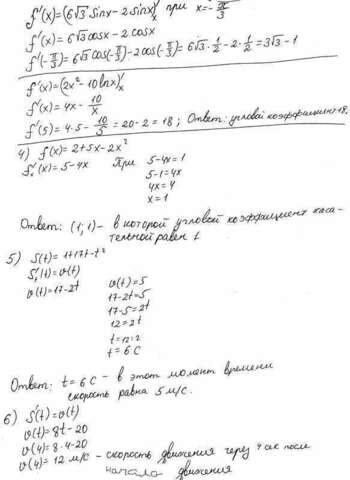 f'(x)=(6√3 Sinx - 2 Sinx)'ₓ при x=-π/3
f'(x)=6√3 cosx - 2 cosx
f'(-π/3)=6√3 cos(-π/3)-2cos(-π/3)=6√3·1/2-2·1/2=3√3-1
f'(x)=(2x²-10lnx)'ₓ
f'(x)=4x-10/x
f'(5)=4·5-10/5=20-2=18; Ответ: угловой коэффициент 18.
4) f(x)=2+5x-2x²
f'ₓ(x)=5-4x При 5-4x=1
5-1=4x
4x=4
x=1
Ответ: (1;1)- в которой угловой коэффициент каса-
тельной равен 1
5) S(t)=1+17t-t²
S'ₜ(t)=v(t)
v(t)=17-2t
v(t)=5
17-2t=5
17-5=2t
12=2t
t=12:2
t=6 с
Ответ: t=6 с - в этот момент времени
скорость равна 5 м/с.
6) S'(t)=v(t)
v(t)=8t-20
v(4)=8·4-20
v(4)=12 м/с - скорость движения через 4 сек после
начала движения